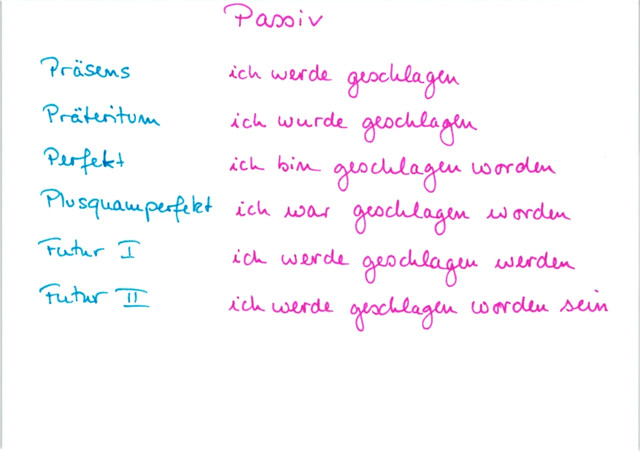 Passiv
Präsens ich werde geschlagen
Präteritum ich wurde geschlagen
Perfekt ich bin geschlagen worden
Plusquamperfekt ich war geschlagen worden
Futur I ich werde geschlagen werden
Futur II ich werde geschlagen worden sein